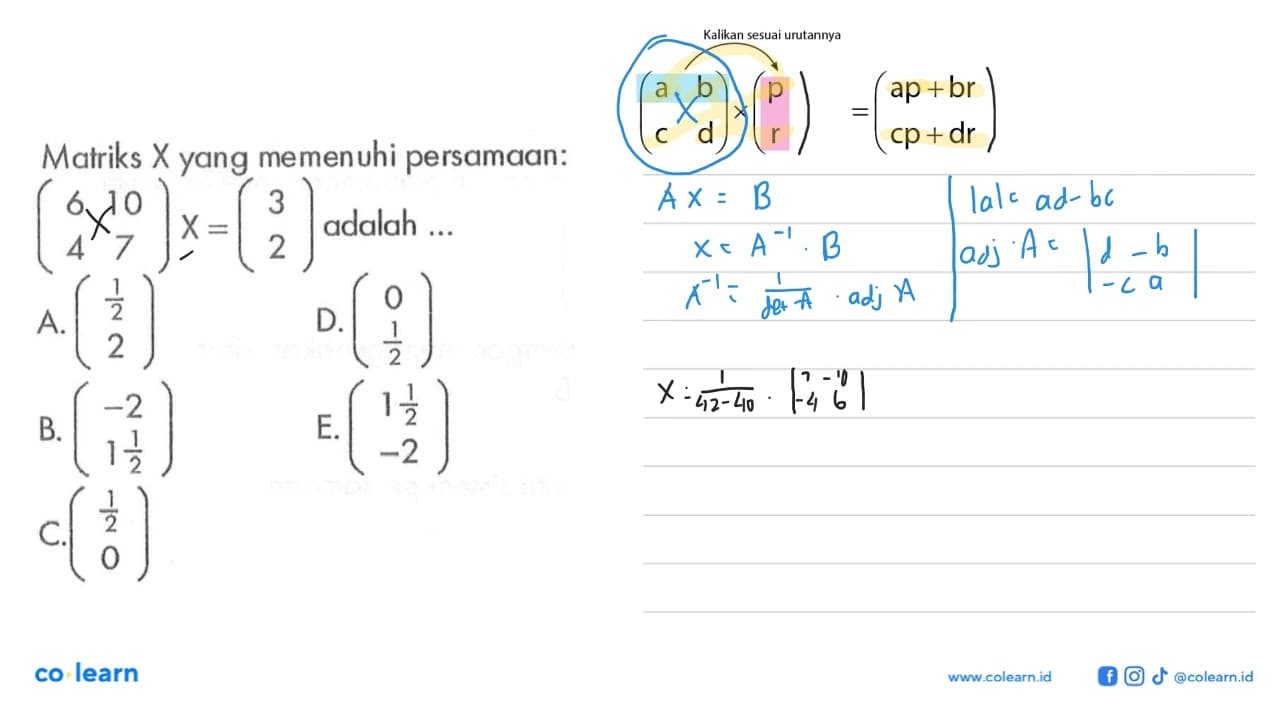 Matriks X yang memenuhi persamaan:
(6 10
4 7) X = (3
2) adalah ...
A. (1/2
2)
B. (-2
1 1/2)
C. (1/2
0)
D. (0
1/2)
E. (1 1/2
-2)
Kalikan sesuai urutannya
(a b
c d) × (p
r) = (ap+br
cp+dr)
A X = B
X = A^-1 . B
A^-1 = 1/det A . adj A
|A| = ad - bc
adj . A = |d -b
-c a|
X = 1/42-40 . |7 -10
-4 6|
co learn
www.colearn.id
@colearn.id